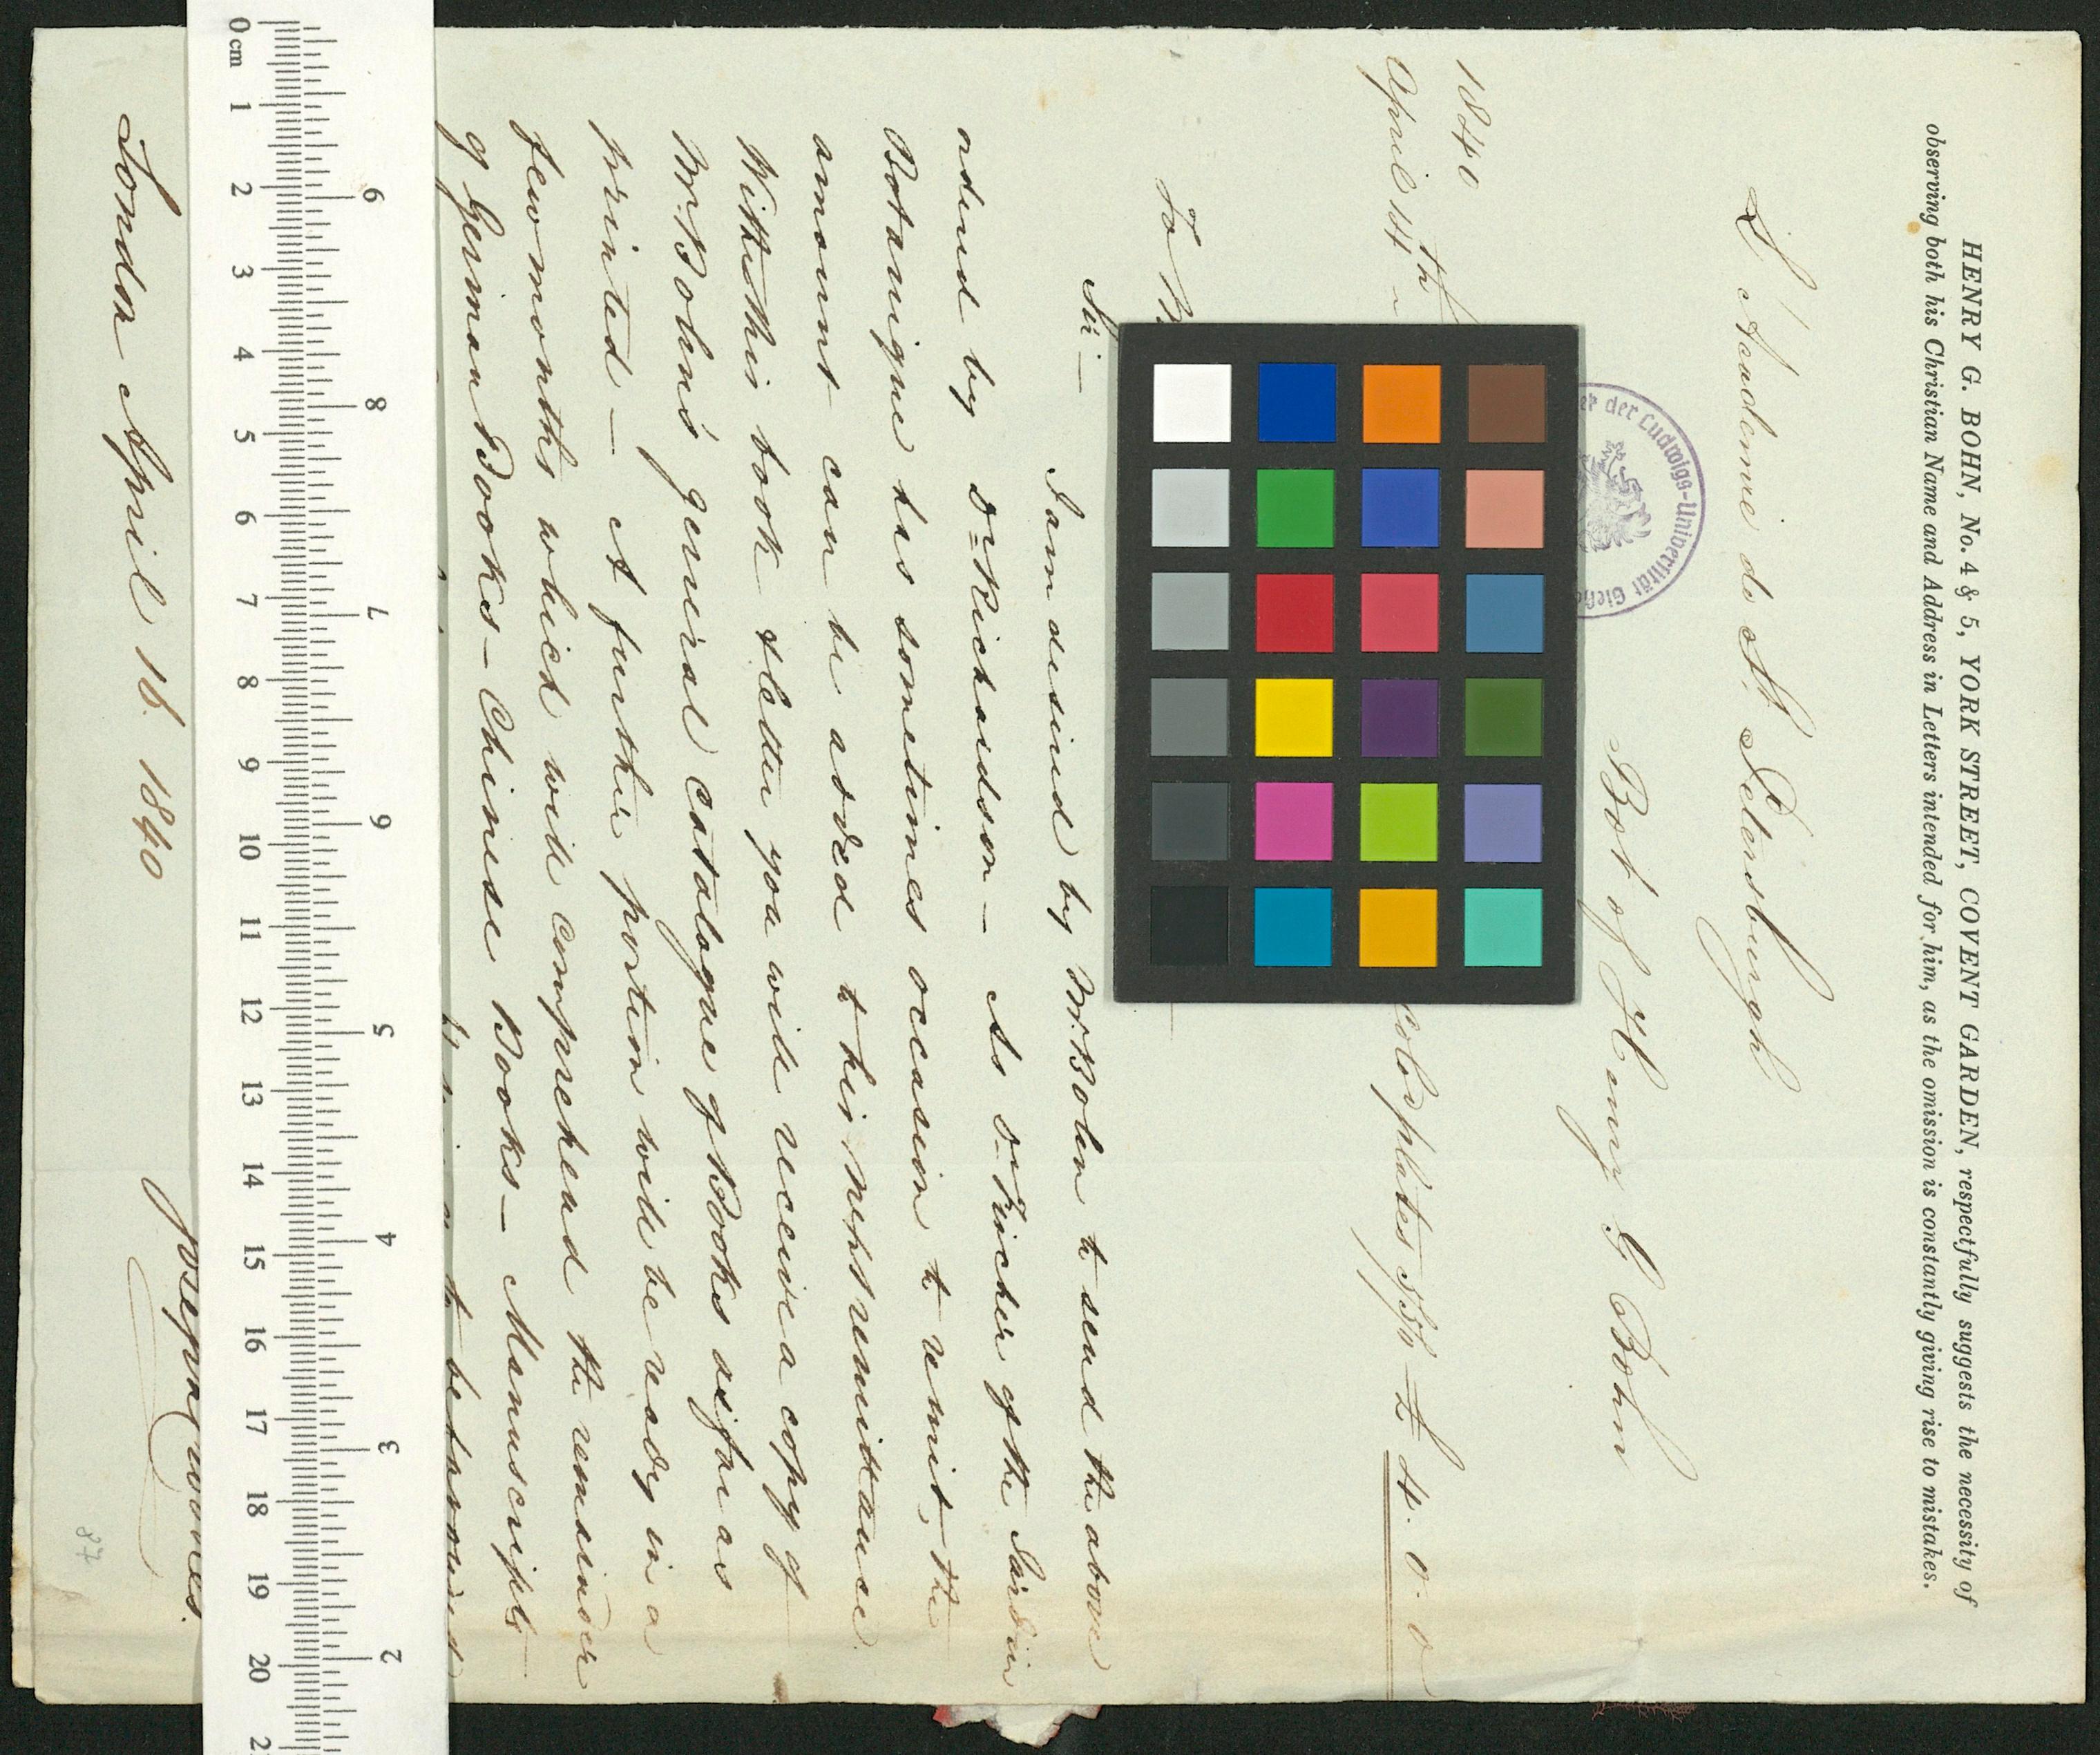 HENRY G. BOHN, No. 4 & 5, YORK STREET, COVENT GARDEN, respectfully suggests the necessity of
observing both his Christian Name and Address in Letters intended for him, as the omission is constantly giving rise to mistakes.
L'Academie de St Petersburgh
Bot of Henry G Bohn
der Ludwigs-Universität Gieße
1840
April 14th
color plates 53/4 £ 4. 0. 0
To
Sir —
I am desired by Mr. Bohn to send the above
orderd by Dr Richardson — As Dr Fischer of the Jardin
Botanique has sometimes occasion to remit, the
amount can be added to his next remittance.
With this book & letter you will receive a copy of
Mr. Bohns general catalogue of Books as far as
printed — A further portion will be ready in a
few months which will comprehend the remainder
of German Books — Chinese Books — Manuscripts
to be
London April 16. 1840
0 cm 1 2 3 4 5 6 7 8 9 10 11 12 13 14 15 16 17 18 19 20 2
9 8 7 6 5 4 3 2